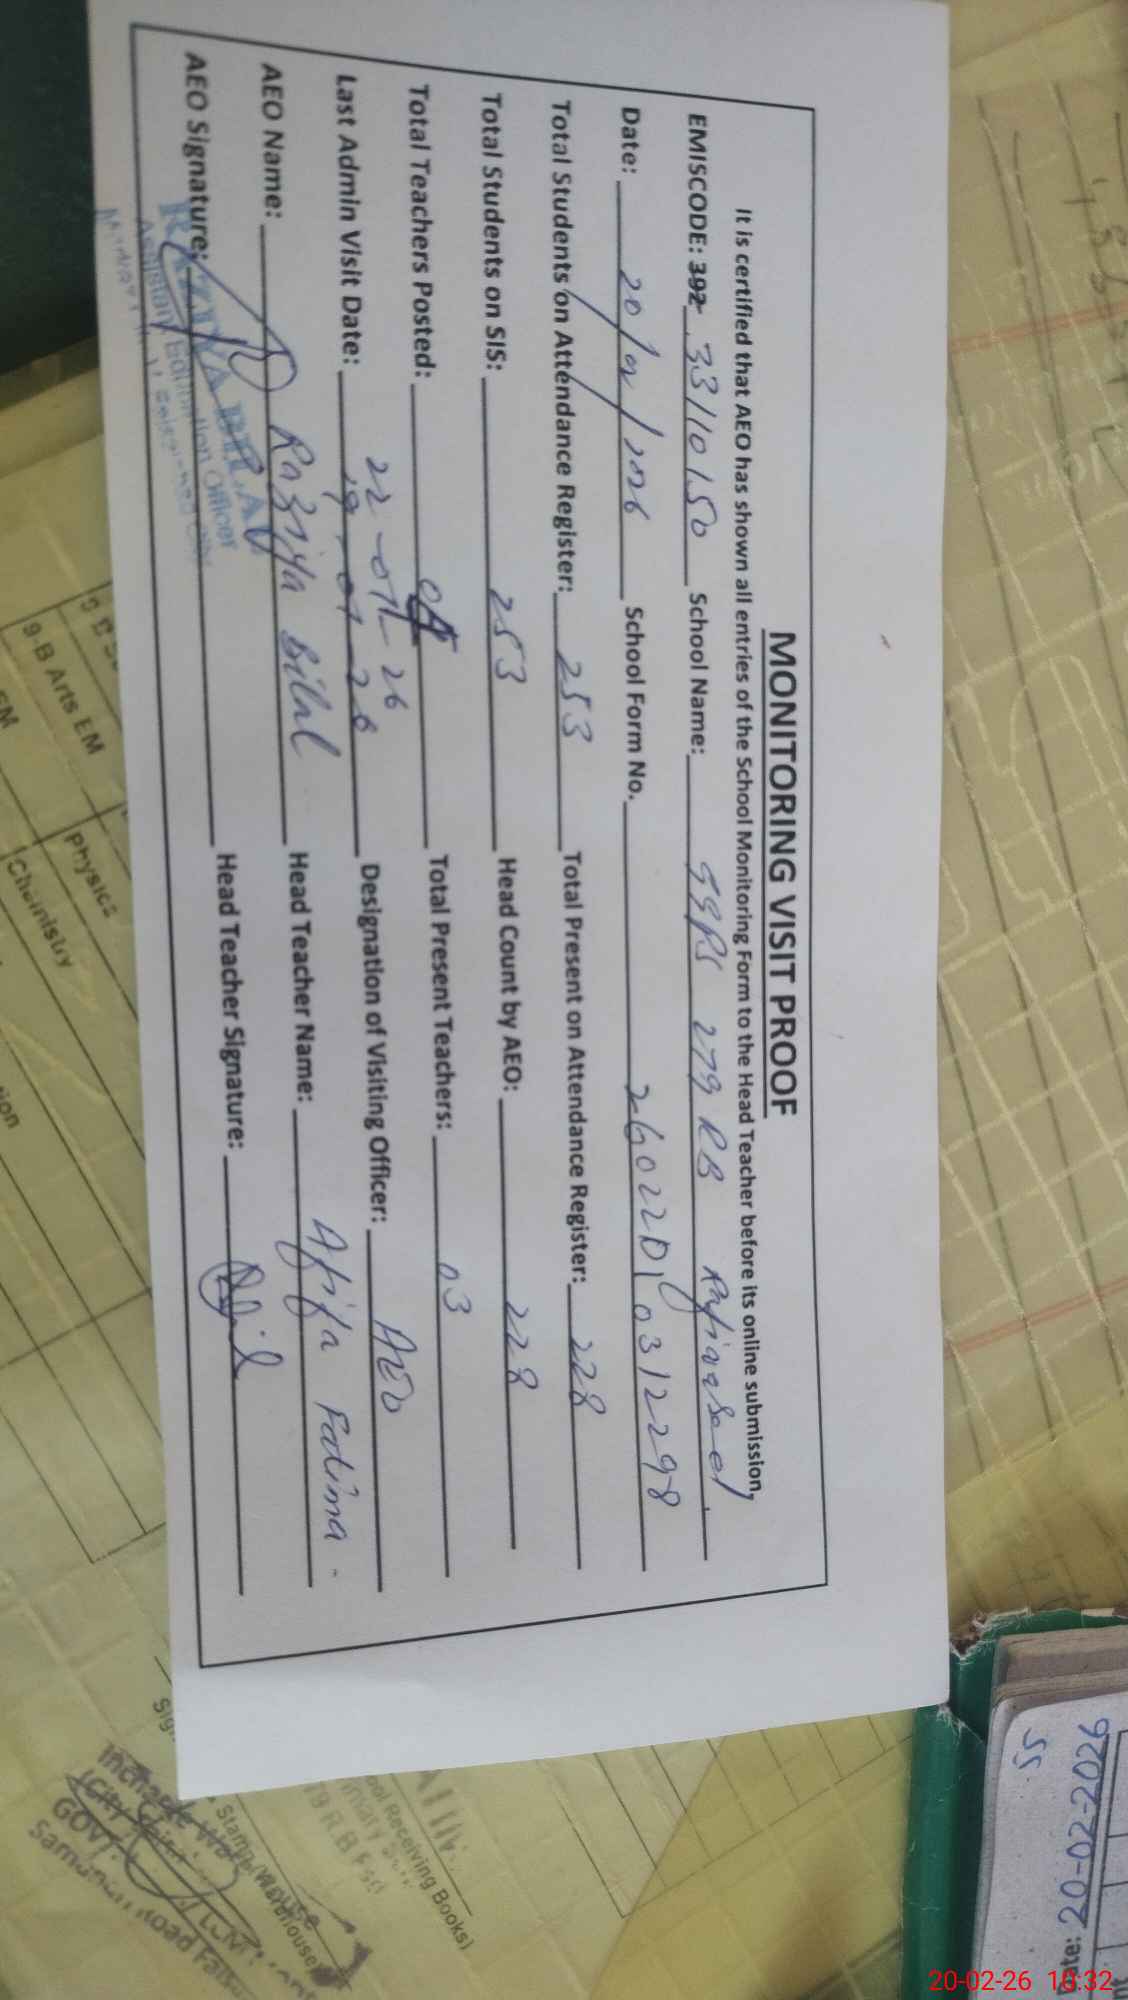 MONITORING VISIT PROOF
It is certified that AEO has shown all entries of the School Monitoring Form to the Head Teacher before its online submission,
EMISCODE: 392 33110150 School Name: GGPS 279 RB
Date: 20/02/2026 School Form No. 26022010312298
Total Students on Attendance Register: 253 Total Present on Attendance Register: 228
Total Students on SIS: 253 Head Count by AEO: 228
Total Teachers Posted: Total Present Teachers: 03
22-01-26
Last Admin Visit Date: Designation of Visiting Officer: AEO
AEO Name: Raziya Bilal Head Teacher Name: Afifa Fatima.
AEO Signature: Head Teacher Signature:
RAZIYA BILAL
Assistant Education Officer
9-B Arts EM
EM
Physics
Chemistry
Stamp
GOVT.
Road
Receiving Books)
Date: 20-02-2026
20-02-26 10:32